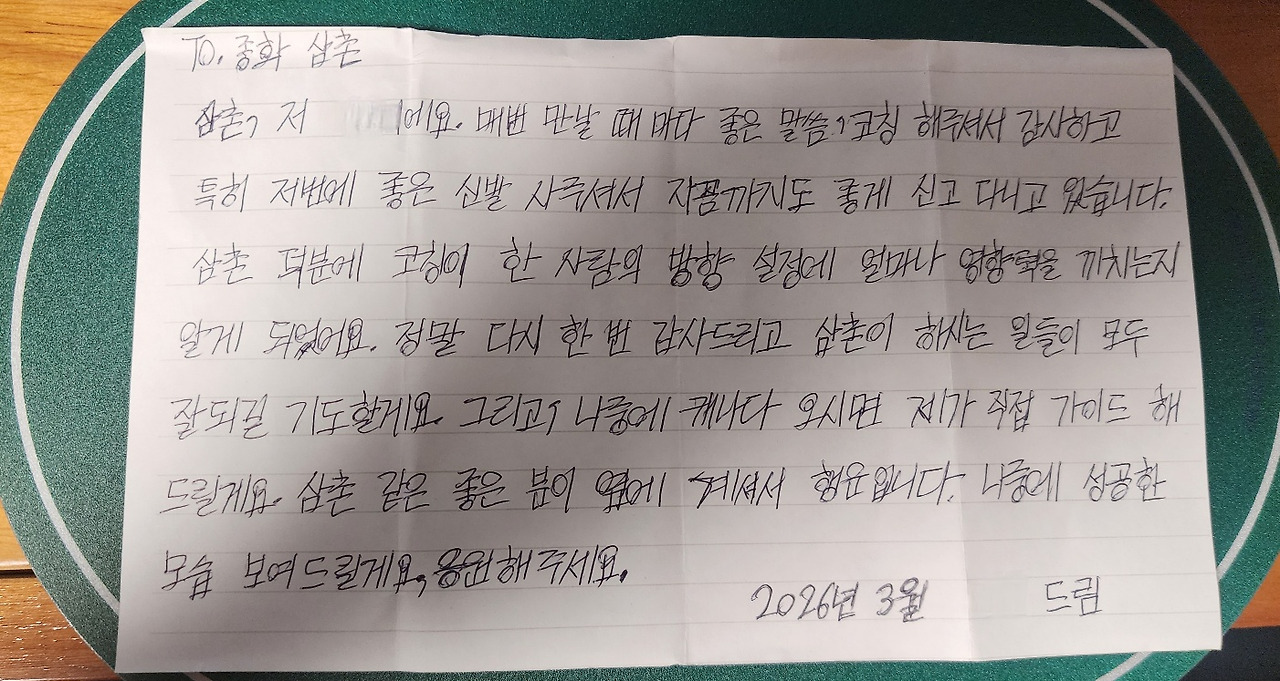 TO. 종화 삼촌
삼촌, 저 이에요. 매번 만날 때 마다 좋은 말씀, 코칭 해주셔서 감사하고
특히 저번에 좋은 신발 사주셔서 지금까지도 좋게 신고 다니고 있습니다.
삼촌 덕분에 코칭이 한 사람의 방향 설정에 얼마나 영향력을 끼치는지
알게 되었어요. 정말 다시 한 번 감사드리고 삼촌이 하시는 일들이 모두
잘되길 기도할게요. 그리고, 나중에 캐나다 오시면 제가 직접 가이드 해
드릴게요. 삼촌 같은 좋은 분이 옆에 계셔서 행운입니다. 나중에 성공한
모습 보여드릴게요, 응원해주세요.
2026년 3월 드림